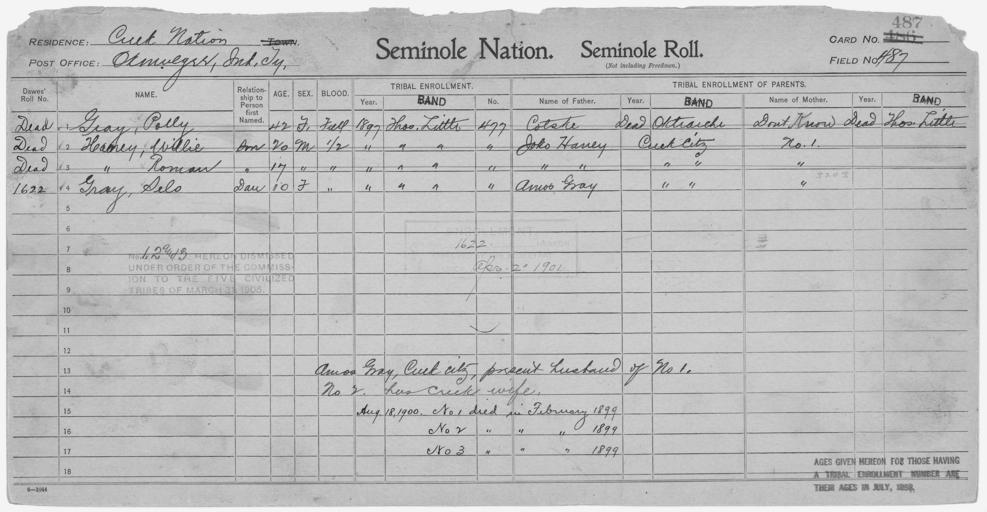 487
RESIDENCE: Creek Nation TOWN. Seminole Nation. Seminole Roll. CARD NO. 486
POST OFFICE: Ind. Ty. (Not including Freedmen.) FIELD NO. 487
Dawes' Roll No. NAME. Relationship to Person first Named. AGE. SEX. BLOOD. TRIBAL ENROLLMENT. TRIBAL ENROLLMENT OF PARENTS.
Year. BAND No. Name of Father. Year. BAND Name of Mother. Year. BAND
Dead 1 Gray, Polly 42 F. Full 1897 Thos. Little 477 Cotske Dead Oktiarche Don't Know Dead Thos. Little
Dead 2 Haney, Willie Son 20 M 1/2 " " " " Joko Haney Creek City No. 1.
Dead 3 " Roman " 17 " " " " " " " " " "
1622 4 Gray, Selo Dau 10 F " " " " " Amos Gray " " "
5
6
7 1622
No. 1, 2 and 3 HEREON DISMISSED
8 UNDER ORDER OF THE COMMISS-
ION TO THE FIVE CIVILIZED
9 TRIBES OF MARCH 31, 1905.
Apr. 2 1901
10
11
12
13 Amos Gray, Creek City, present husband of No 1.
14 No 2. has creek wife.
15 Aug. 18, 1900. No 1 died in February 1899
16 No 2 " " " 1899
17 No 3 " " " 1899
18
AGES GIVEN HEREON FOR THOSE HAVING
A TRIBAL ENROLLMENT NUMBER ARE
THEIR AGES IN JULY, 1898.